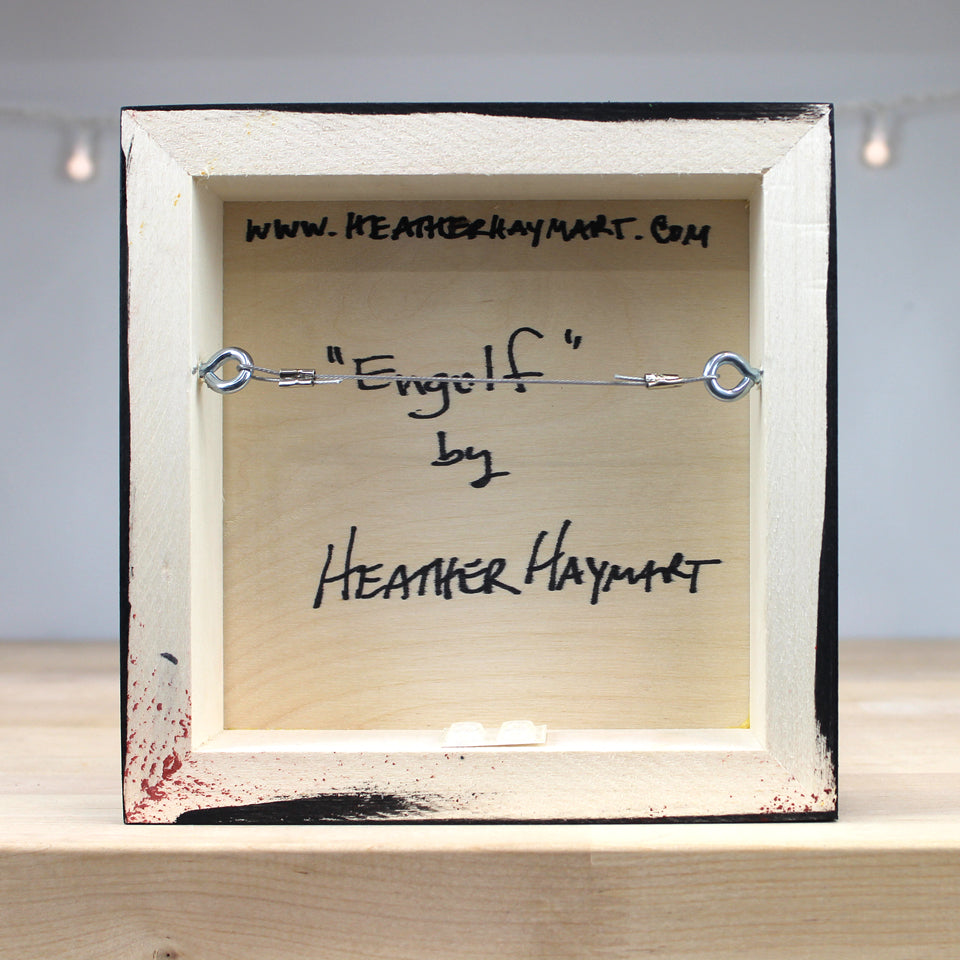 WWW.HEATHERHAYMART.COM
"Engulf"
by
HEATHER HAYMART